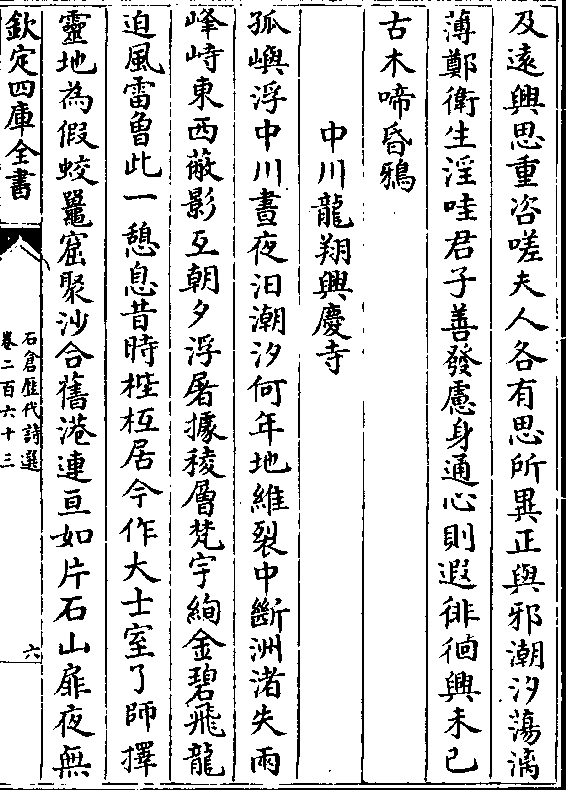 及遠興思重咨嗟夫人各有思所異正與邪潮汐蕩漓
薄鄭衛生淫哇君子善發慮身通心則遐徘徊興未已
古木啼昏鴉
中川龍翔興慶寺
孤嶼浮中川晝夜汨潮汐何年地維裂中斷洲渚失兩
峰峙東西蔽影互朝夕浮屠據稜層梵宇絢金碧飛龍
迫風雷魯此一憩息昔時梐枑居今作大士室了師擇
靈地為假蛟鼉窟聚沙合舊港連亘如片石山扉夜無
欽定四庫全書
石倉歷代詩選
卷二百六十三
六